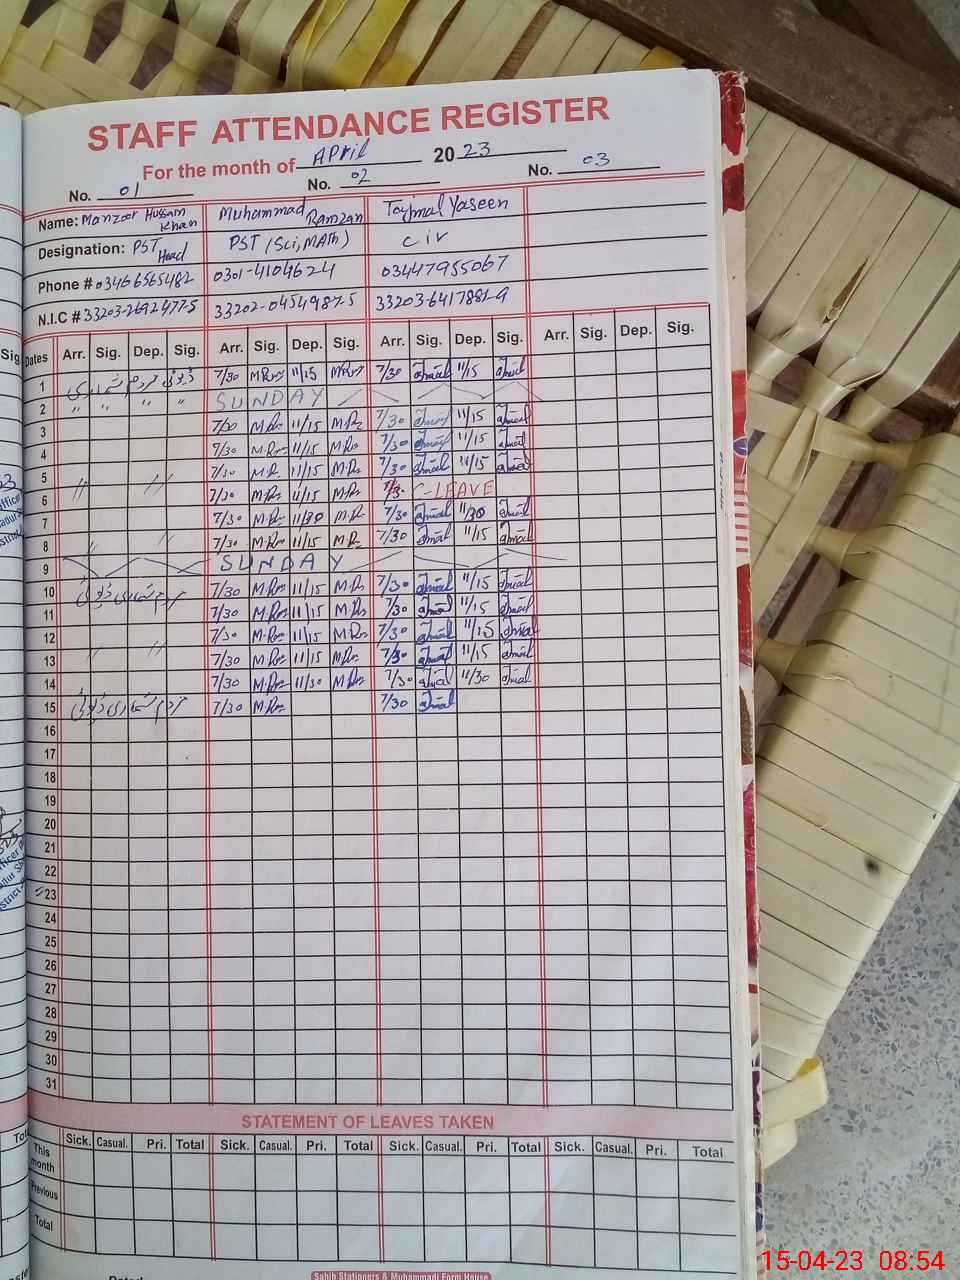 STAFF ATTENDANCE REGISTER
For the month of April 2023
No. 01 No. 02 No. 03
Name: Manzoor Hussain Khan Muhammad Ramzan Tajmal Yaseen
Designation: PST Head PST (Sci, MATh) civ
Phone # 03466565482 0301-4104624 03447955067
N.I.C # 33203-2692477-5 33202-0454987-5 33203-6417881-9
Dates Arr. Sig. Dep. Sig. Arr. Sig. Dep. Sig. Arr. Sig. Dep. Sig. Arr. Sig. Dep. Sig.
1 مردم شماری ڈیوٹی 7/30 M.Rm 11/15 M.Rm 7/30 11/15
2 " " " " SUNDAY
3 7/30 M.Rm 11/15 M.Rm 7/30 11/15
4 7/30 M.Rm 11/15 M.Rm 7/30 11/15
5 7/30 M.Rm 11/15 M.Rm 7/30 11/15
6 // // 7/30 M.Rm 11/15 M.Rm 7/30 C-LEAVE
7 7/30 M.Rm 11/30 M.Rm 7/30 11/30
8 // // 7/30 M.Rm 11/15 M.Rm 7/30 11/15
9 SUNDAY
10 مردم شماری ڈیوٹی 7/30 M.Rm 11/15 M.Rm 7/30 11/15
11 7/30 M.Rm 11/15 M.Rm 7/30 11/15
12 7/30 M.Rm 11/15 M.Rm 7/30 11/15
13 // // 7/30 M.Rm 11/15 M.Rm 7/30 11/15
14 7/30 M.Rm 11/30 M.Rm 7/30 11/30
15 مردم شماری ڈیوٹی 7/30 M.Rm 7/30
16
17
18
19
20
21
22
23
24
25
26
27
28
29
30
31
STATEMENT OF LEAVES TAKEN
Sick. Casual. Pri. Total Sick. Casual. Pri. Total Sick. Casual. Pri. Total Sick. Casual. Pri. Total
This month
Previous
Total
Sahib Stationers & Muhammadi Form House
15-04-23 08:54